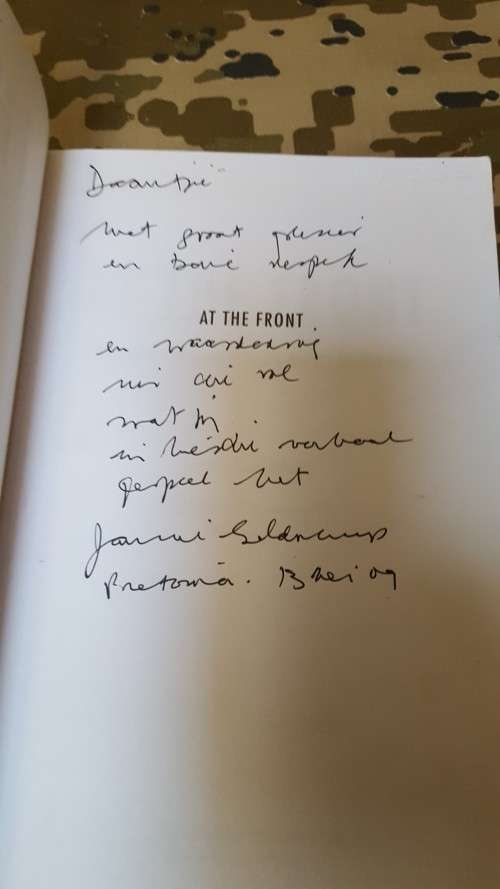 Daantjie
met groot plesier
en soveel respek
AT THE FRONT
en waardering
vir die rol
wat jy
in hierdie verhaal
gespeel het
Jannie Geldenhuys
Pretoria. 13 Mei 09